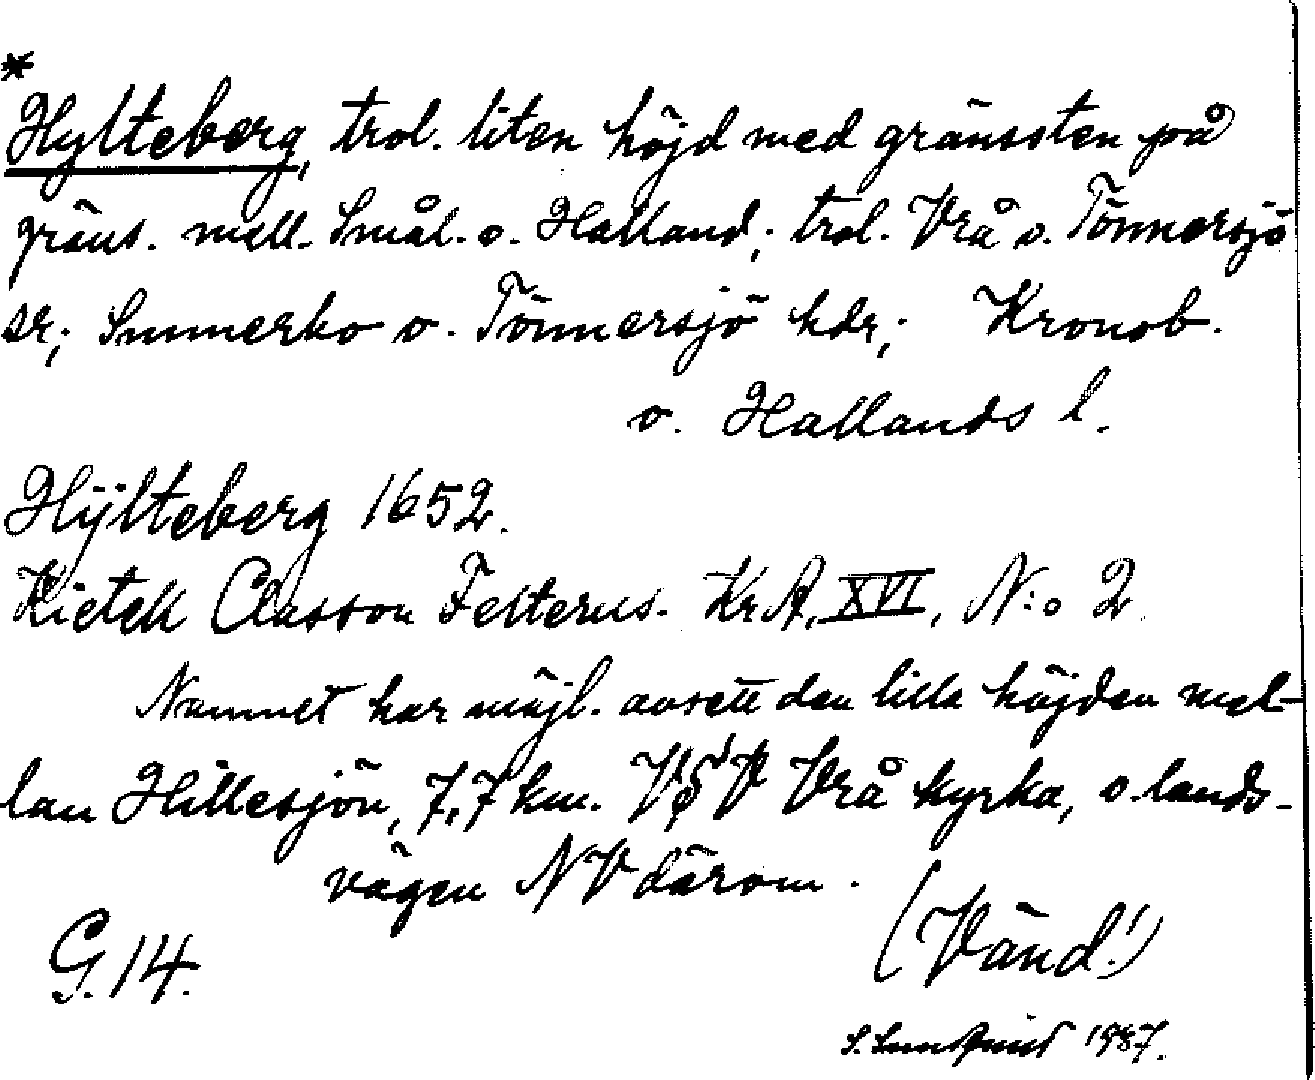 *
Hylteberg, trol. liten höjd med gränssten på
gräns. mell. Smål. o. Halland; trol. Vrå o. Tönnersjö
sr; Sunnerbo o. Tönnersjö hdr; Kronob.
o. Hallands l.
Hÿlteberg 1652.
Kietell Classon Felterus. KrA, XVI, N:o 2.
Namnet har möjl. avsett den lilla höjden mel-
lan Hillesjön, 7,7 km. VSV Vrå kyrka, o. lands-
vägen NV därom.
(Vänd!)
G. 14.
S. 1987.